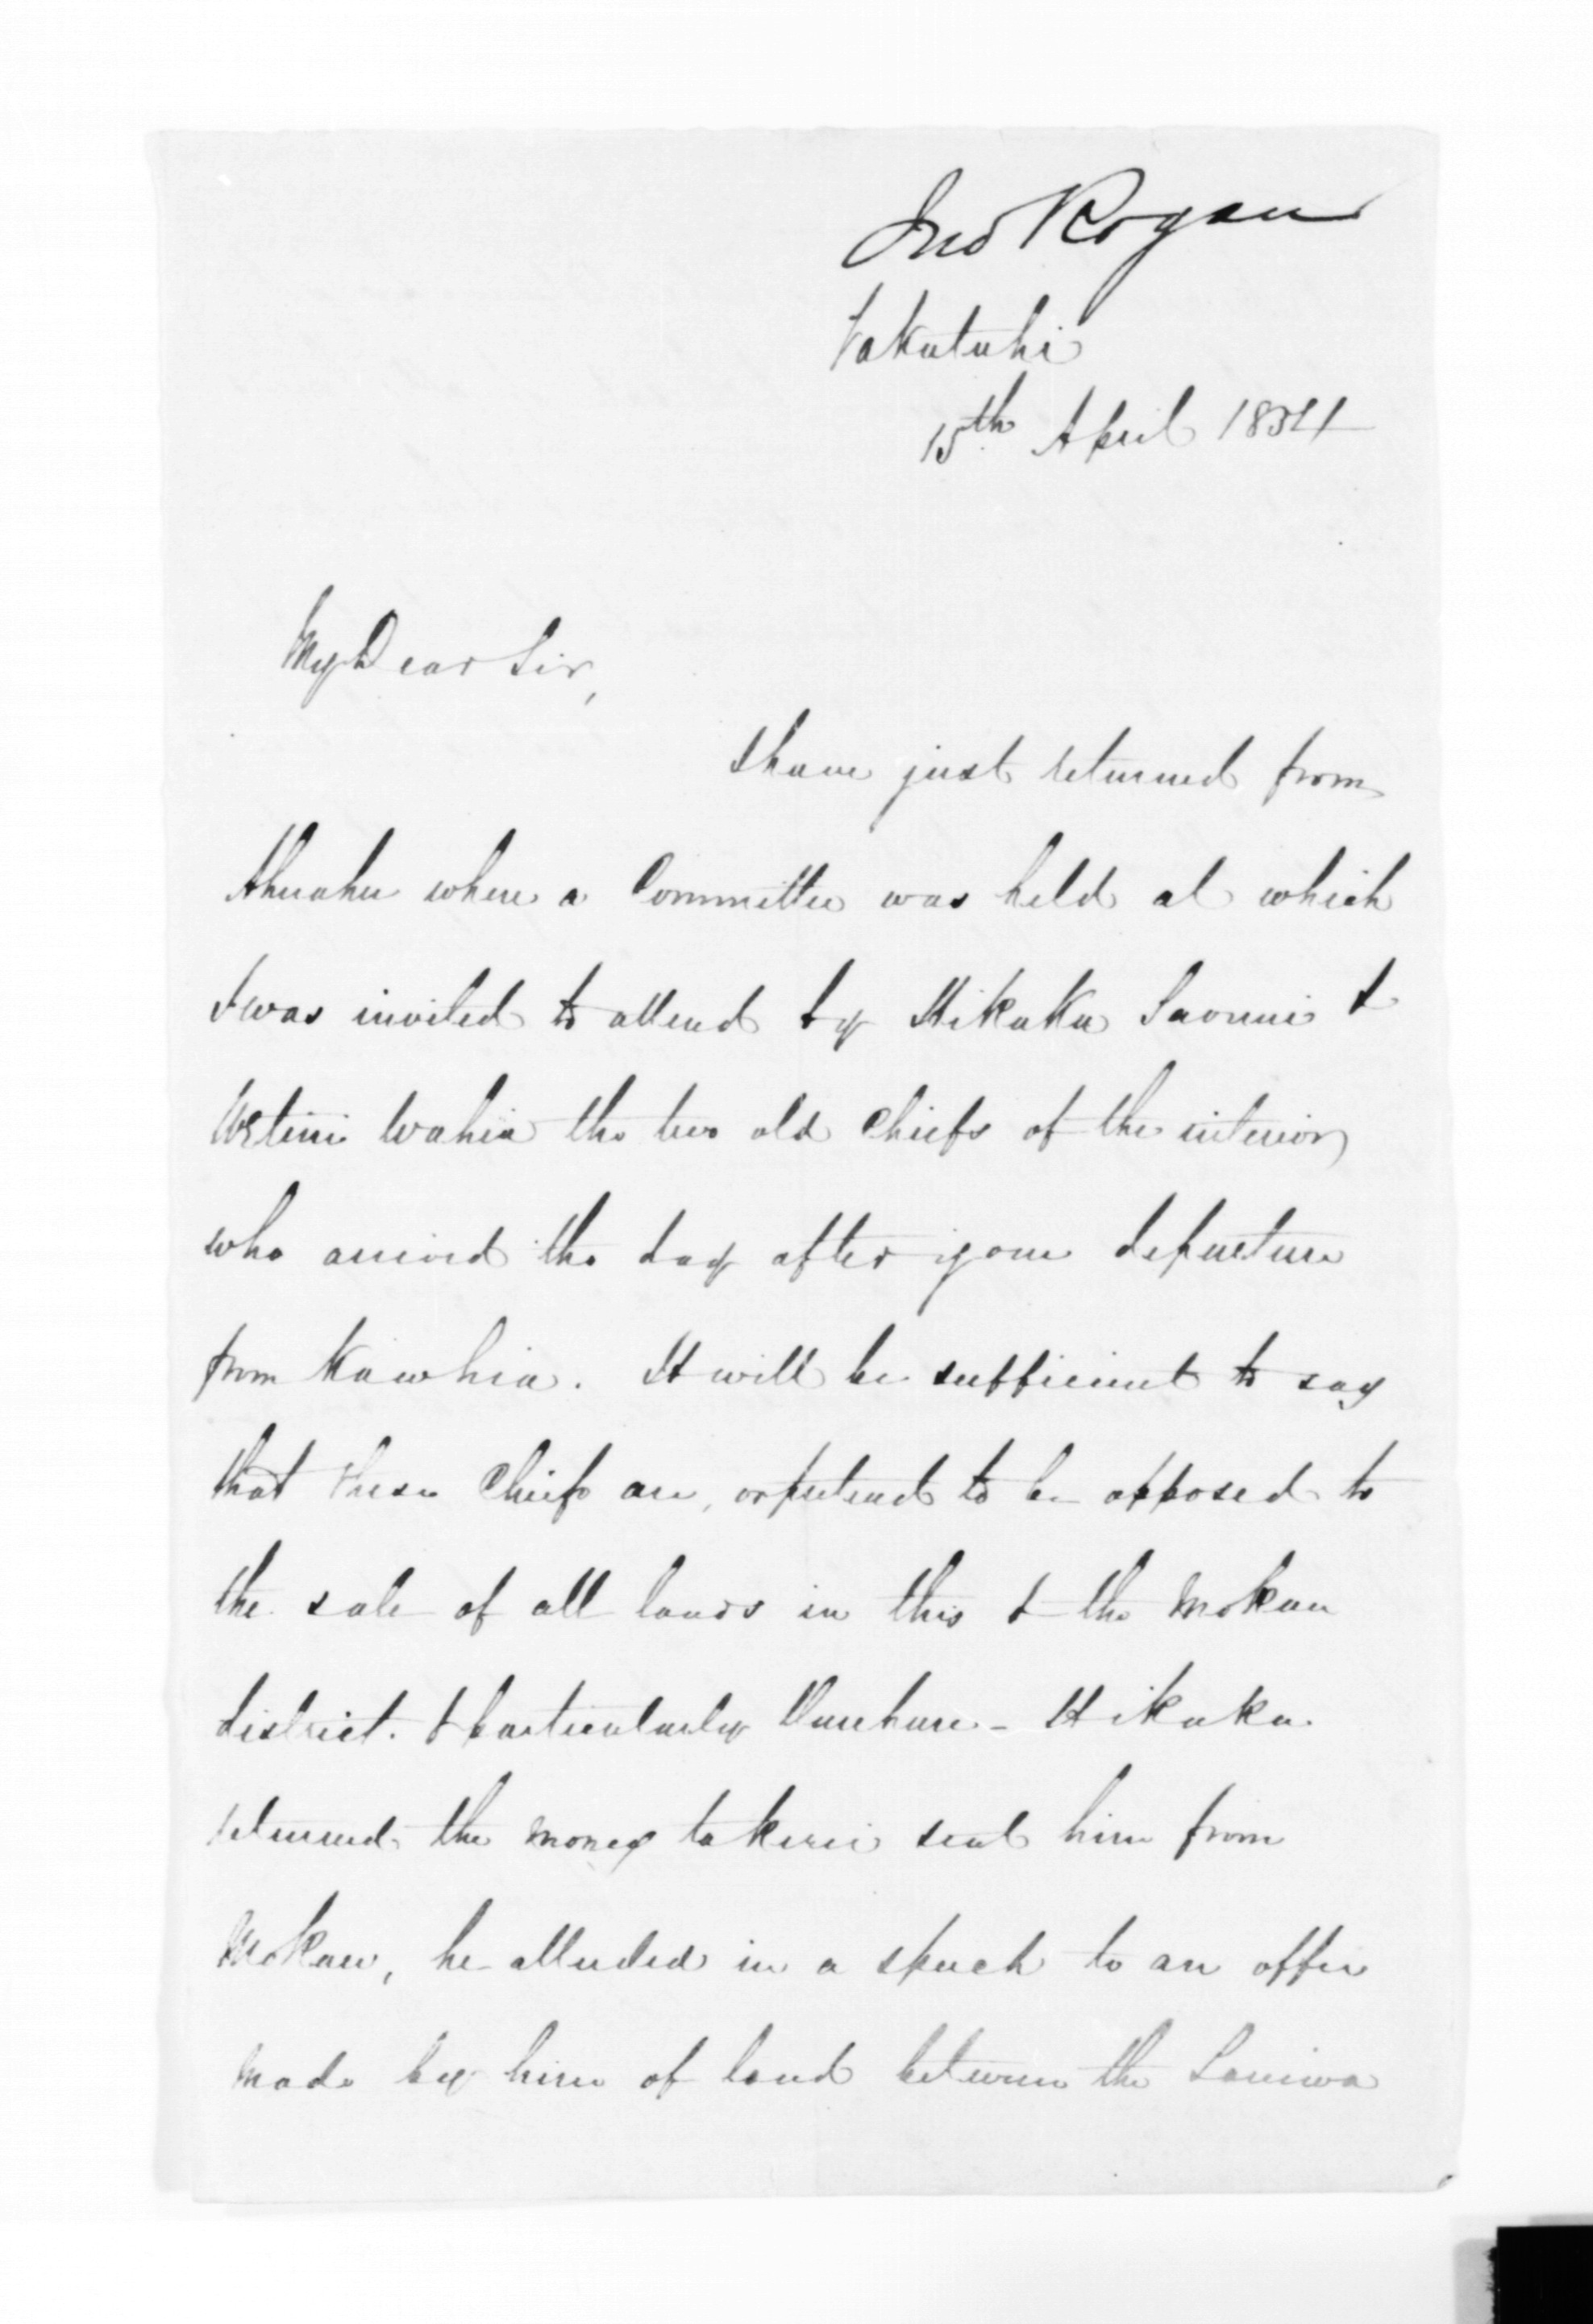 Jno Rogan
Takatahi
15th April 1854
My Dear Sir,
I have just returned from
Ahuahu where a Committee was held at which
I was invited to attend by Hikaka Taonui &
Wetini Wahia the two old Chiefs of the interior
who arrived the day after your departure
from Kawhia. It will be sufficient to say
that these Chiefs are, or pretend to be opposed to
the sale of all lands in this & the Mokau
district. & particularly Hikaka
returned the money Takerei sent him from
Mokau, he alluded in a speech to an offer
made by him of land between the Taniwa